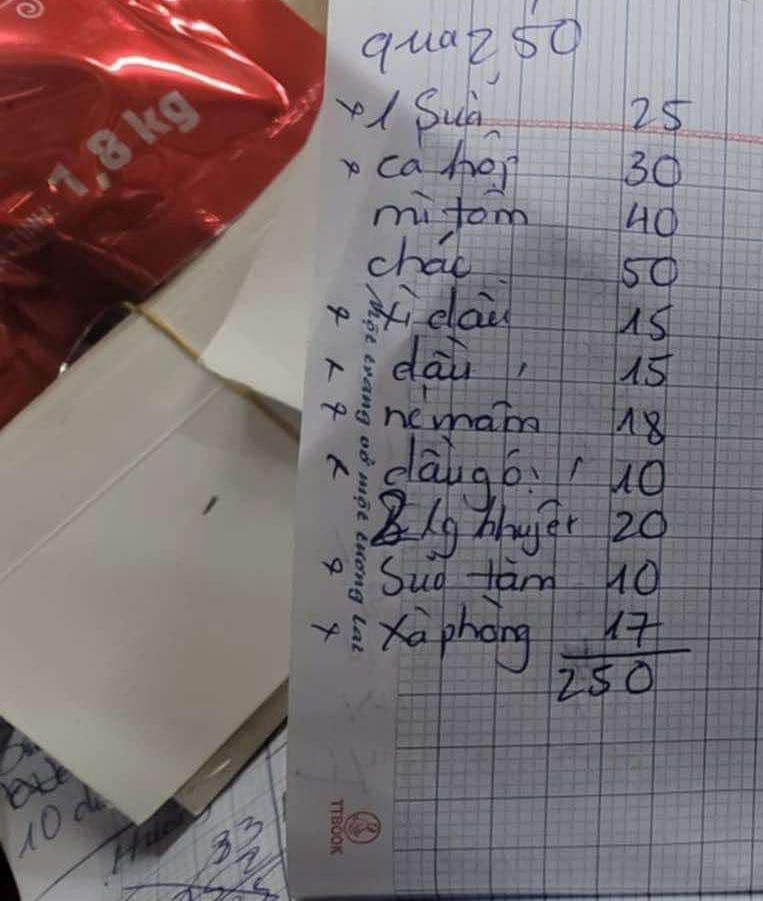 1,8 kg
quà 250
+ 1 Sữa 25
+ cá hộp 30
mì tôm 40
cháo 50
+ xì dầu 15
+ dầu 15
+ nc mắm 18
+ dầu gội 10
20
+ Sữa tắm 10
+ Xà phòng 17
250
Một trang vở một tương lai
TTBOOK
10
33